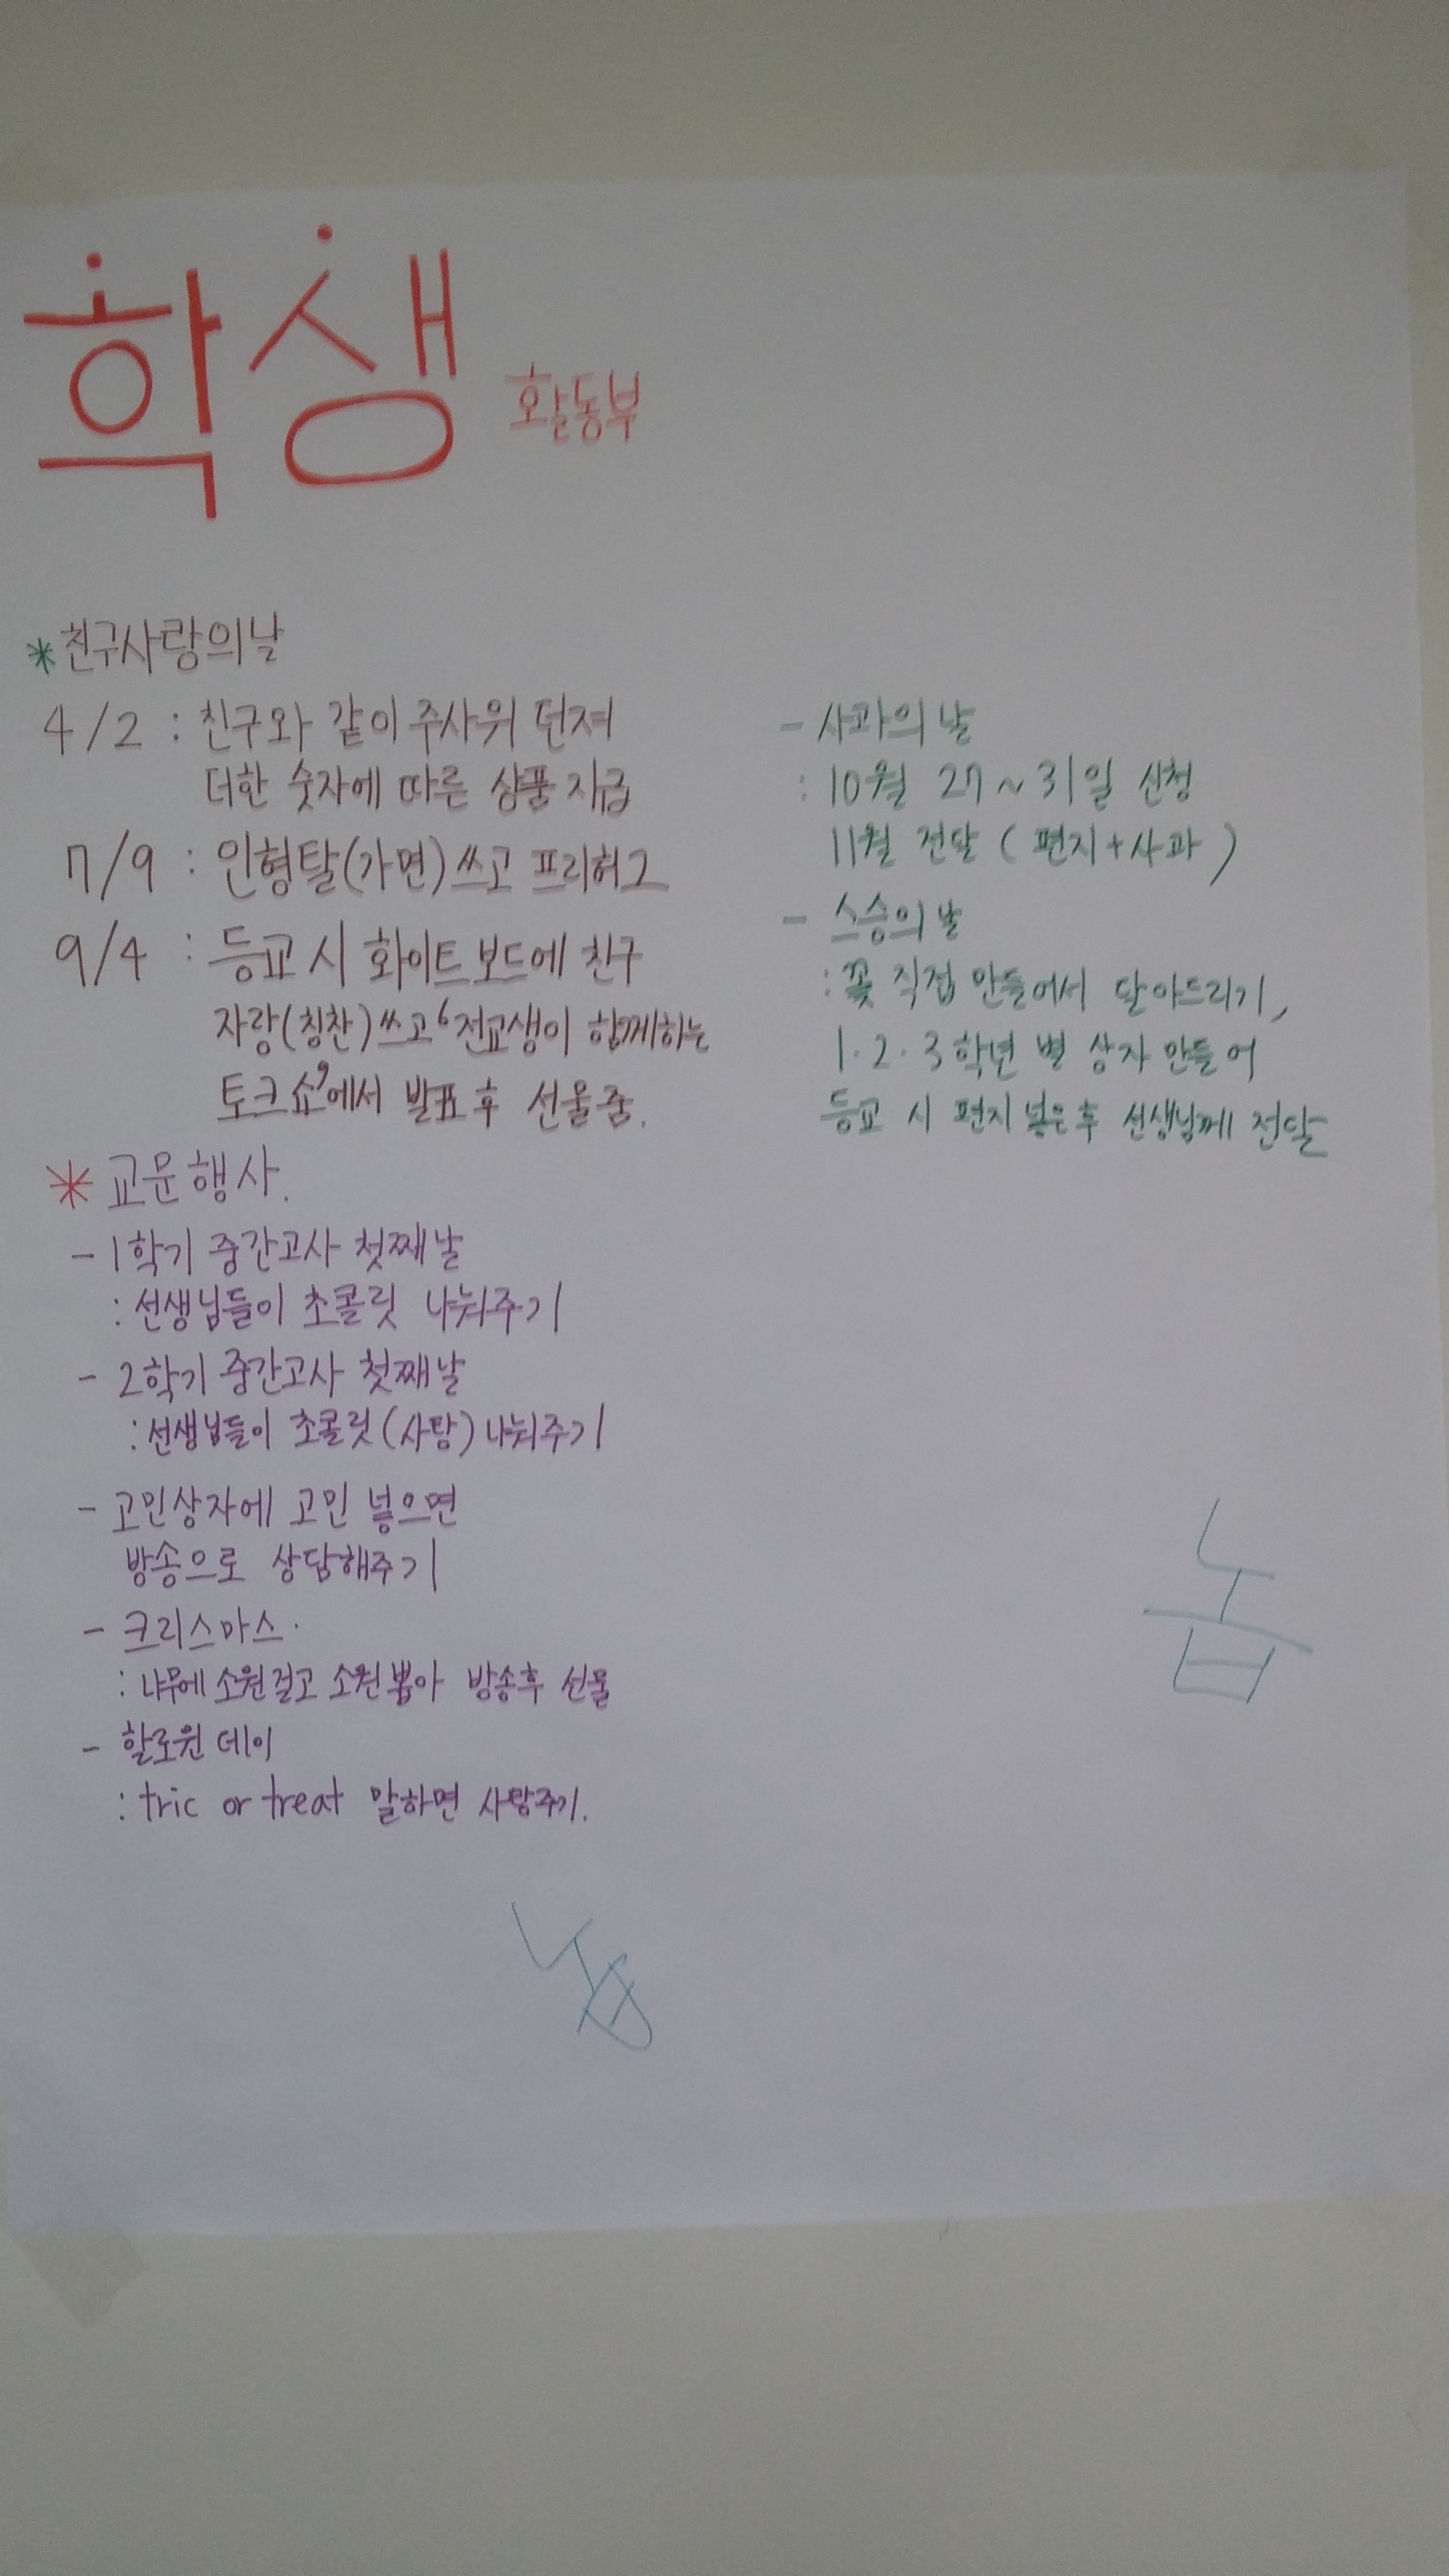 학생 활동부
*친구사랑의날
4/2 : 친구와 같이 주사위 던져
더한 숫자에 따른 상품 지급
7/9 : 인형탈(가면) 쓰고 프리허그
9/4 : 등교 시 화이트 보드에 친구
자랑(칭찬)쓰고 '전교생이 함께하는
토크쇼'에서 발표 후 선물줌.
* 교문행사.
- 1학기 중간고사 첫째날
: 선생님들이 초콜릿 나눠주기
- 2학기 중간고사 첫째날
: 선생님들이 초콜릿(사탕) 나눠주기
- 고민상자에 고민 넣으면
방송으로 상담해주기
- 크리스마스.
: 나무에 소원걸고 소원뽑아 방송후 선물
- 할로윈 데이
: tric or treat 말하면 사탕주기.
- 사과의 날
: 10월 27~31일 신청
11월 전달 (편지+사과)
- 스승의 날
: 꽃 직접 만들어서 달아드리기,
1.2.3학년 별 상자 만들어
등교 시 편지 넣은 후 선생님께 전달
놉